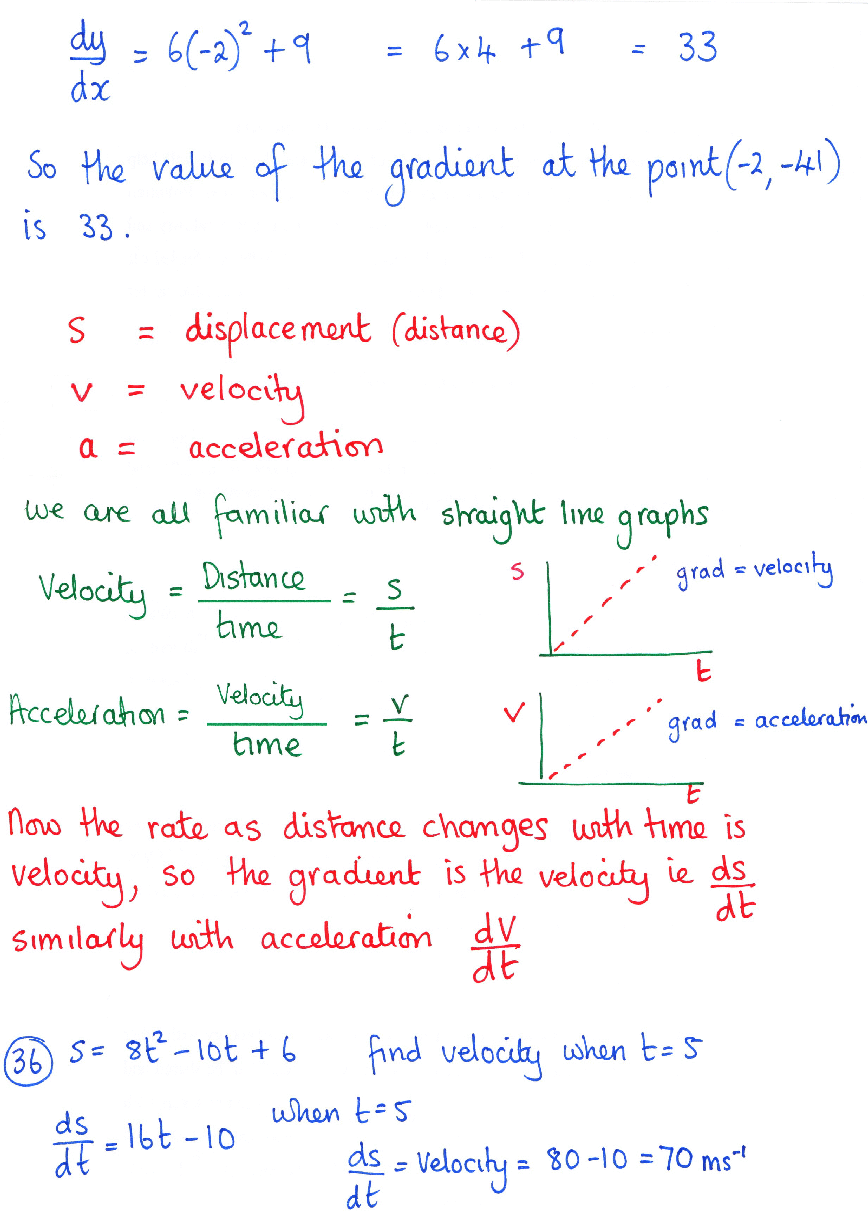 dy/dx = 6(-2)² + 9 = 6×4 + 9 = 33
So the value of the gradient at the point (-2, -41)
is 33.
S = displacement (distance)
v = velocity
a = acceleration
we are all familiar with straight line graphs
Velocity = Distance/time = s/t
S
grad = velocity
t
Acceleration = Velocity/time = v/t
v
grad = acceleration
t
Now the rate as distance changes with time is
velocity, so the gradient is the velocity ie ds/dt
similarly with acceleration dV/dt
36 S = 8t² - 10t + 6 find velocity when t = 5
ds/dt = 16t - 10 when t = 5
ds/dt = Velocity = 80 - 10 = 70 ms⁻¹